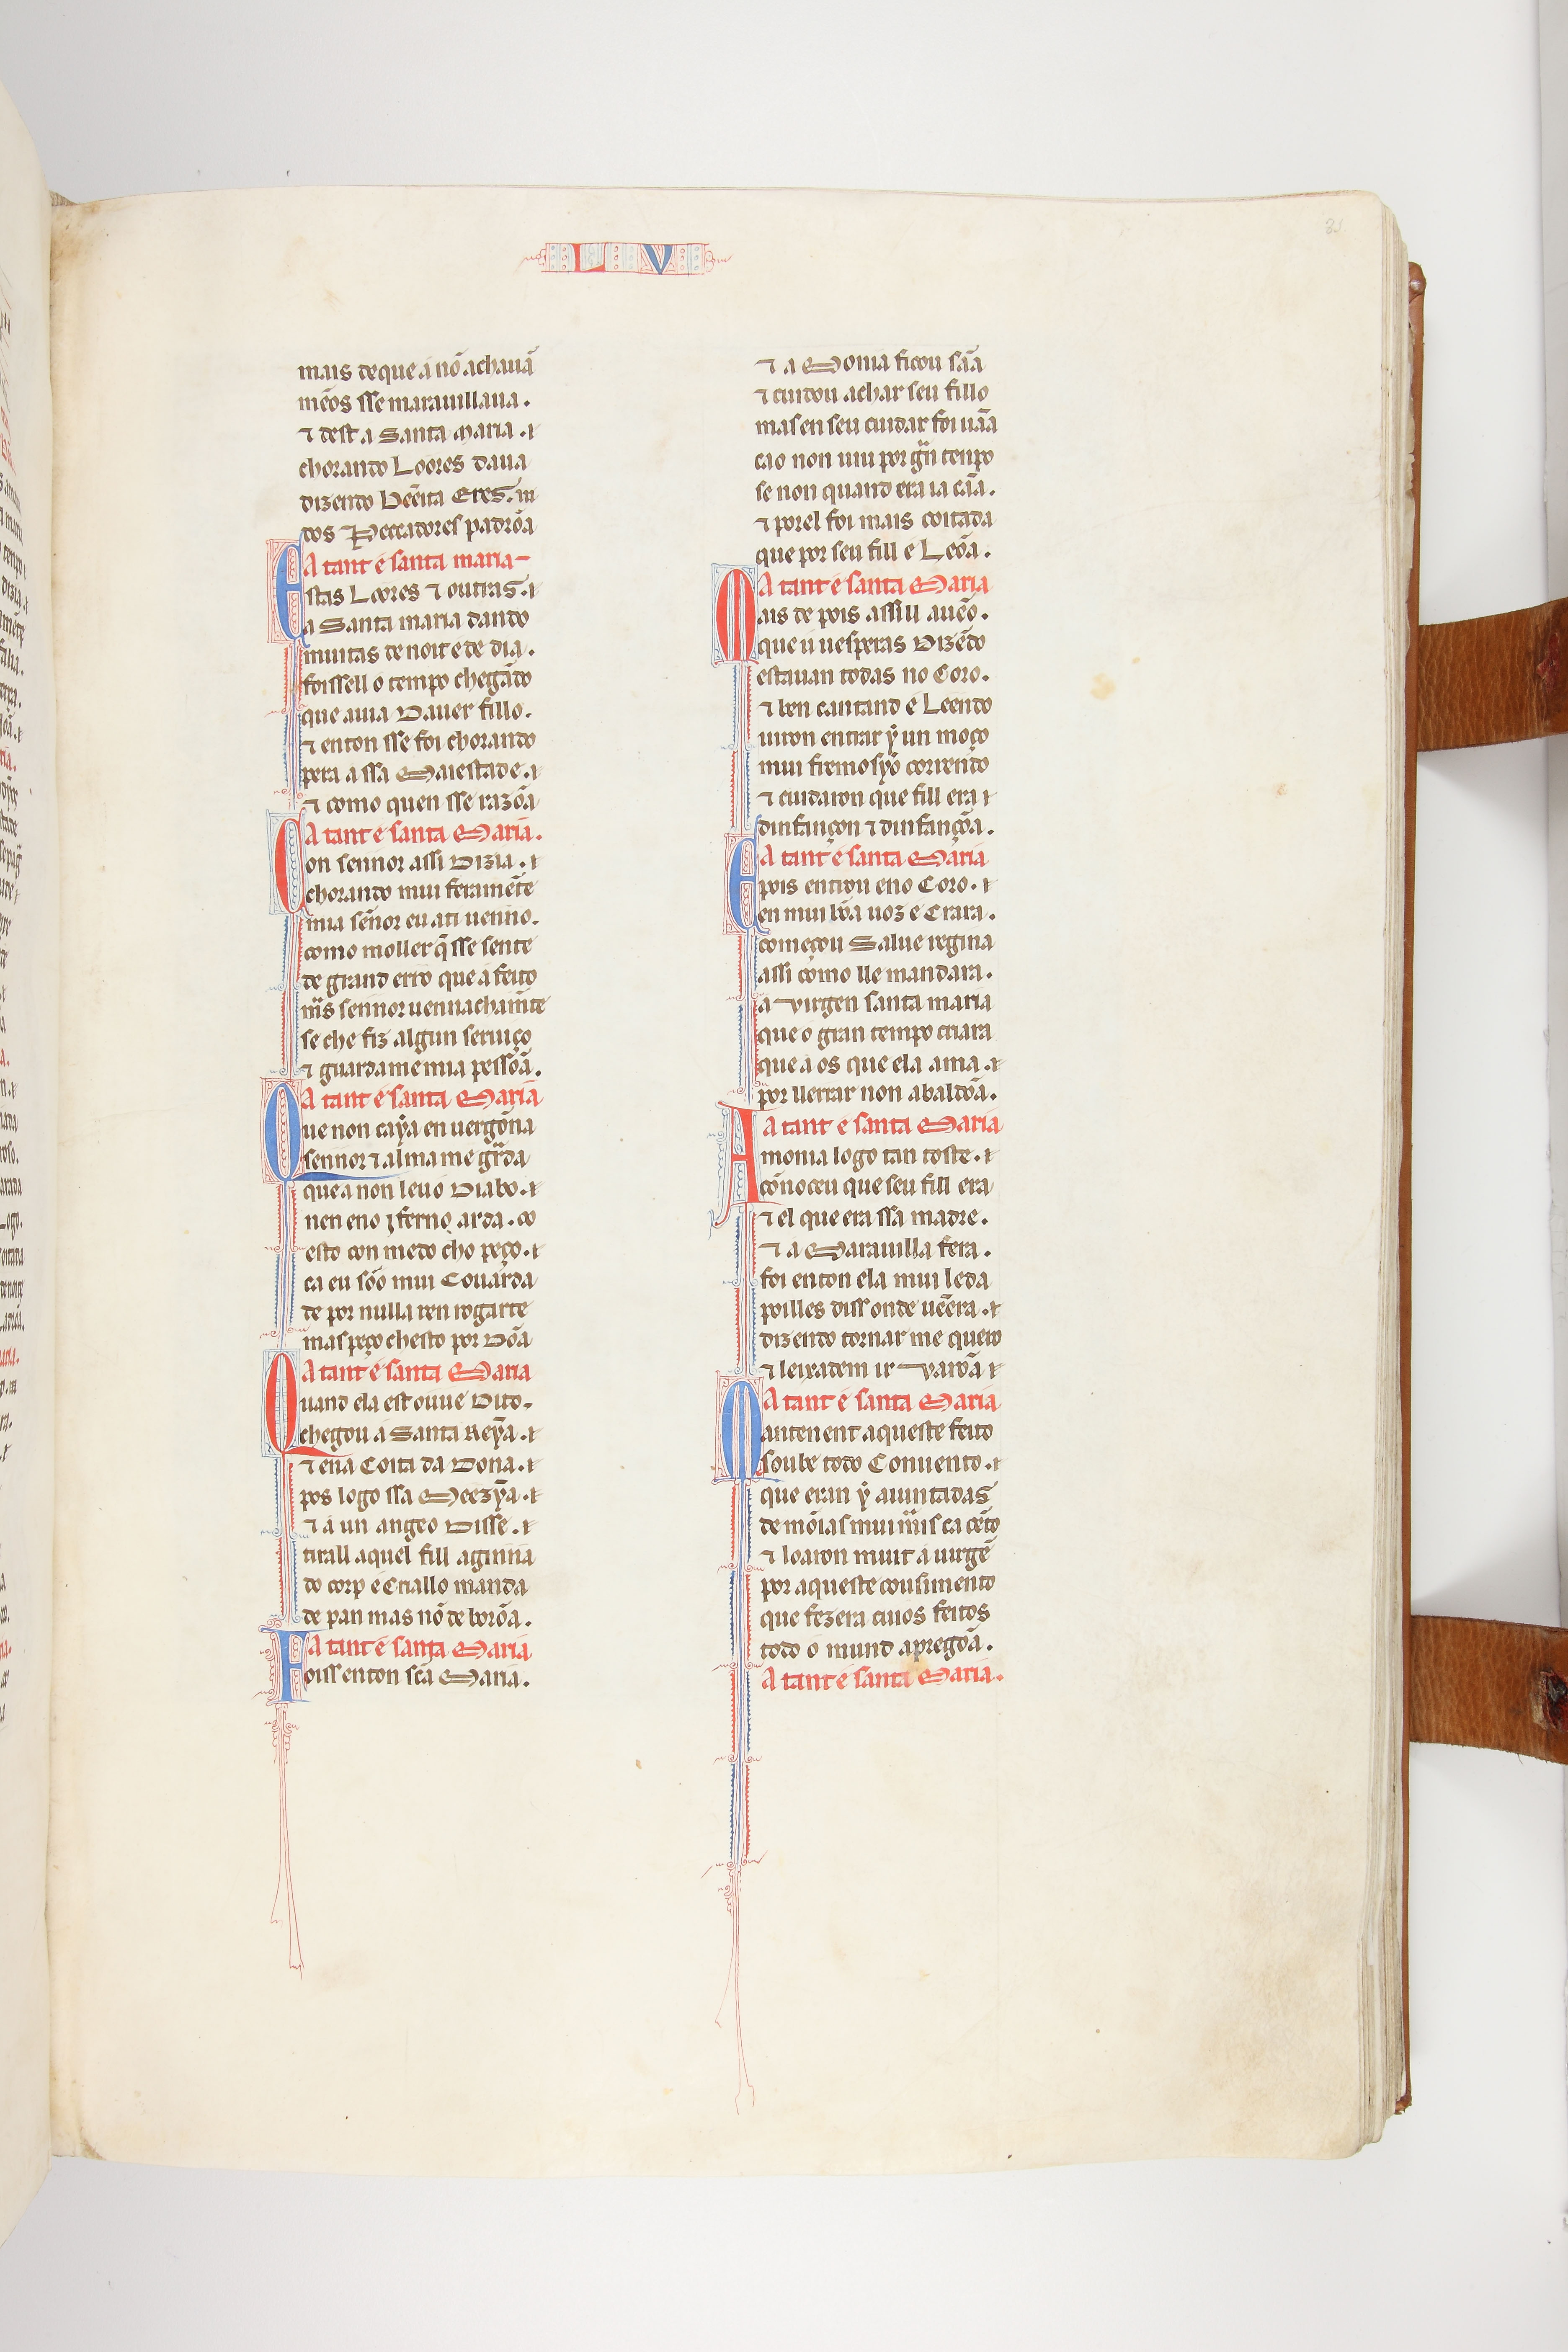 L V
31.
mais de que á nõ achauã
mẽos sse marauillaua .
⁊ dest a Santa Maria . ⁊
chorando Loores daua
dizendo bẽeita eres . ⁊
dos Peccadores padrõa
A tant é santa maria
Estas Loores ⁊ outras . ⁊
a Santa maria dando
muitas de noit e de dia .
foissell o tempo chegãdo
que auia Dauer fillo .
⁊ enton sse foi chorando
pera a ssa Maiestade . ⁊
⁊ como quen sse razõa
A tant é santa Maria .
Con sennor assi Dizia . ⁊
chorando mui feramẽte
mia señor eu a ti uenno .
como moller q̃ sse sente
de grand erro que á feito
mas sennor uennachamẽte
se che fiz algun seruiço
⁊ guardame mia pessõa .
A tant é santa Maria
Que non caỹa en uergõna
sennor ⁊ alma me gũrda
que a non leuo Diabo . ⁊
nen eno ȷferno arda . co
esto con medo cho peço . ⁊
ca eu sõo mui Couarda
de por nulla ren rogarte
mas peço chesto por Dõa
A tant é santa Maria
Quand ela est ouue Dito .
chegou á Santa Reỹa . ⁊
⁊ ena Coita da Dona . ⁊
pos logo ssa Meezỹa . ⁊
⁊ á un angeo Disse . ⁊
tirall aquel fill aginna
do corp e Criallo manda
de pan mas nõ de borõa .
A tant é santa Maria
Foiss enton sc̃a Maria .
⁊ a Monia ficou sãa
⁊ cuidou achar seu fillo
mas en seu cuidar foi uãa
ca o non uiu por grã tenpo
se non quand era ia cãa .
⁊ por el foi mais coitada
que por seu fill e Leõa .
A tant é santa Maria
Mais de pois assill auẽo .
que ú uesperas Dizẽdo
estauan todas no Coro .
⁊ ben cantand e Leendo
uiron entrar ỹ un moço
mui fremosỹo correndo
⁊ cuidaron que fill era ⁊
dinfançon ⁊ dinfançõa .
A tant é santa Maria
E pois entrou eno Coro . ⁊
en mui bõa uoz e Crara .
começou Salue regina
assi como lle mandara .
a uirgen santa maria
que o gran tempo criara
que á os que ela ama . ⁊
por llerrar non abaldõa .
A tant é santa Maria
A monia logo tan toste . ⁊
cõnoceu que seu fill era
⁊ el que era ssa madre .
⁊ á Marauilla fera .
foi enton ela mui leda
poilles diss onde uẽera . ⁊
dizendo tornar me quero
⁊ leixadem ir Varõa ⁊
A tant é santa Maria
Mantenent aqueste feito
soube todo Conuento . ⁊
que eran ỹ aiuntadas
de mõias mui mais ca cẽto
⁊ loaron muit á uirgẽ
por aqueste cousimento
que fezera cuios feitos
todo o mund apregõa .
A tant é santa Maria .